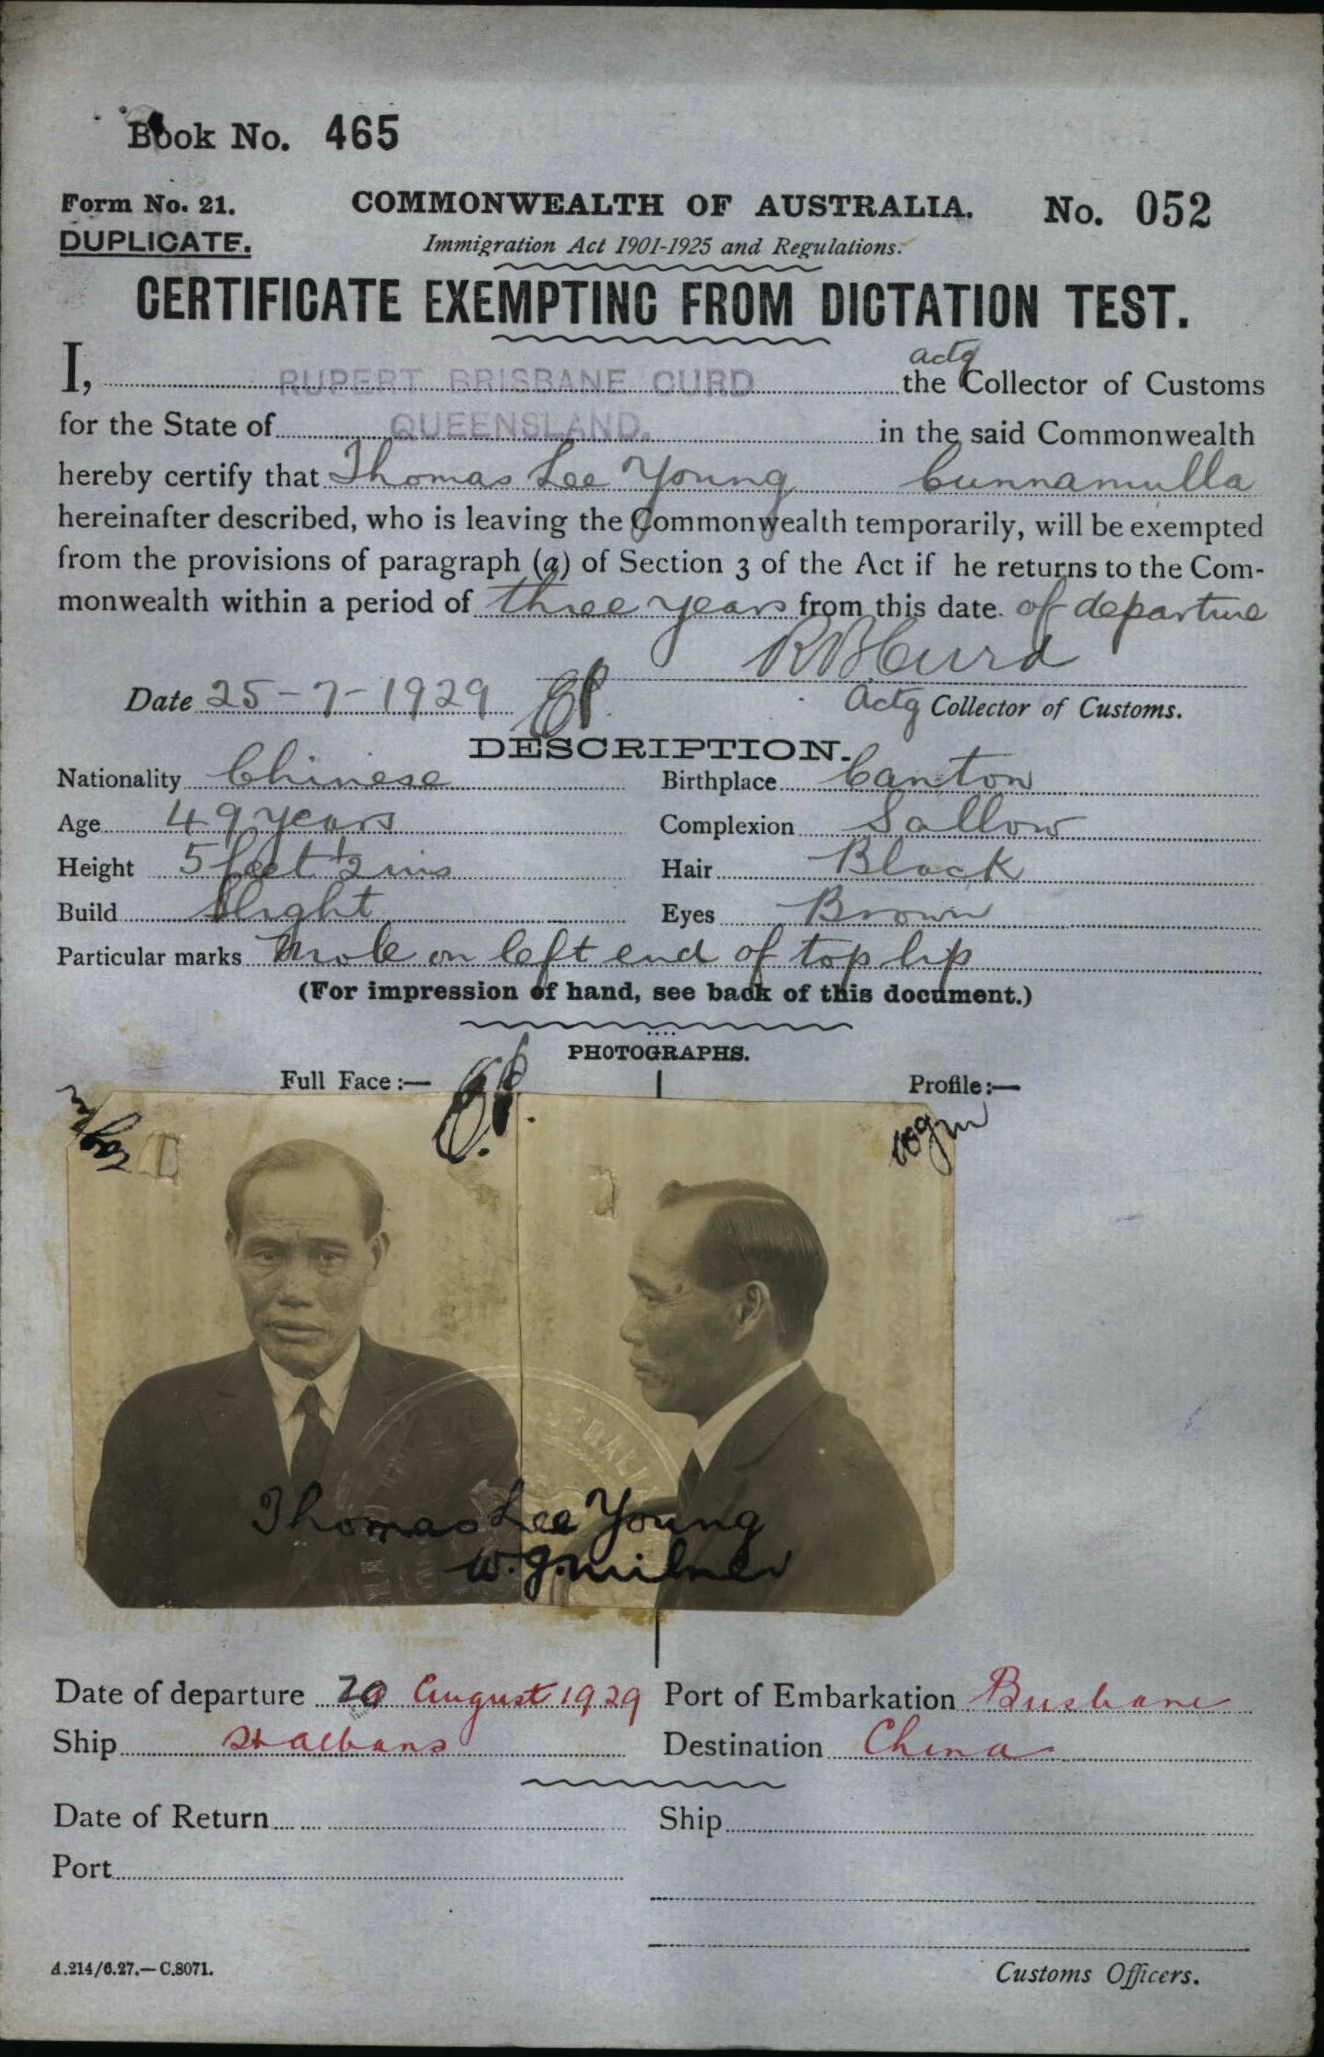 Book No. 465
Form No. 21. COMMONWEALTH OF AUSTRALIA. No. 052
DUPLICATE. Immigration Act 1901-1925 and Regulations.
CERTIFICATE EXEMPTING FROM DICTATION TEST.
I, RUPERT BRISBANE CURD the actg Collector of Customs
for the State of QUEENSLAND. in the said Commonwealth
hereby certify that Thomas Lee Young Cunnamulla
hereinafter described, who is leaving the Commonwealth temporarily, will be exempted
from the provisions of paragraph (a) of Section 3 of the Act if he returns to the Com-
monwealth within a period of three years from this date of departure
R B Curd
Date 25-7-1929 Actg Collector of Customs.
DESCRIPTION.
Nationality Chinese Birthplace Canton
Age 49 years Complexion Sallow
Height 5 feet ½ ins Hair Black
Build Slight Eyes Brown
Particular marks Mole on left end of top lip
(For impression of hand, see back of this document.)
PHOTOGRAPHS.
Full Face:— Profile:—
wgm
Thomas Lee Young
W.J. Milner
Date of departure 20 August 1929 Port of Embarkation Brisbane
Ship St Albans Destination China
Date of Return Ship
Port
A.214/6.27.—C.8071. Customs Officers.